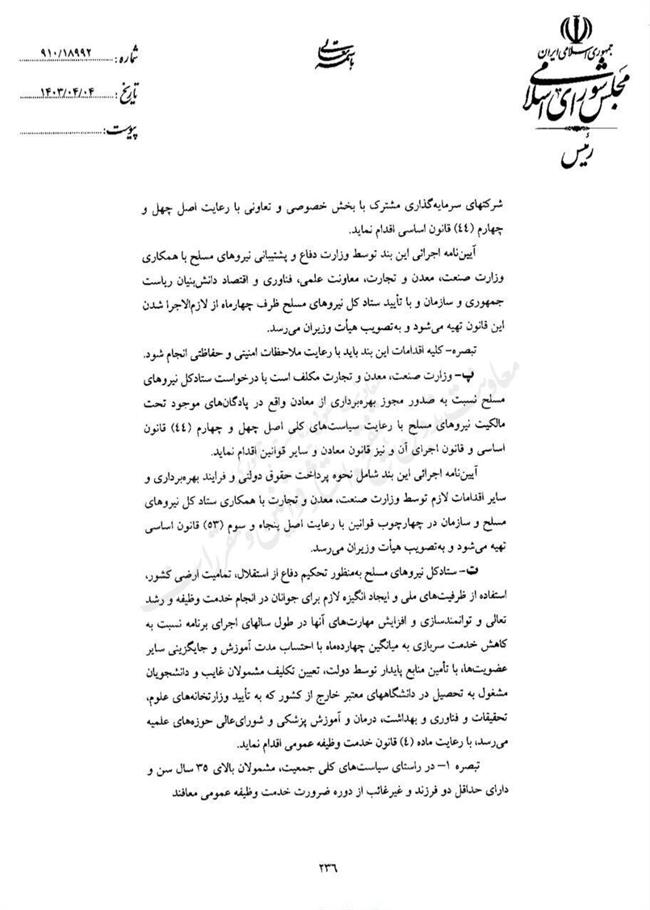 جمهوری اسلامی ایران
مجلس شورای اسلامی
رئیس
باسمه تعالی
شماره: ۹۱۰/۱۸۹۹۲
تاریخ: ۱۴۰۳/۰۴/۰۴
پیوست:
شرکتهای سرمایه‌گذاری مشترک با بخش خصوصی و تعاونی با رعایت اصل چهل و
چهارم (۴۴) قانون اساسی اقدام نماید.
آیین‌نامه اجرائی این بند توسط وزارت دفاع و پشتیبانی نیروهای مسلح با همکاری
وزارت صنعت، معدن و تجارت، معاونت علمی، فناوری و اقتصاد دانش‌بنیان ریاست
جمهوری و سازمان و با تأیید ستاد کل نیروهای مسلح ظرف چهارماه از لازم‌الاجرا شدن
این قانون تهیه می‌شود و به‌تصویب هیأت وزیران می‌رسد.
تبصره- کلیه اقدامات این بند باید با رعایت ملاحظات امنیتی و حفاظتی انجام شود.
پ- وزارت صنعت، معدن و تجارت مکلف است با درخواست ستادکل نیروهای
مسلح نسبت به صدور مجوز بهره‌برداری از معادن واقع در پادگان‌های موجود تحت
مالکیت نیروهای مسلح با رعایت سیاست‌های کلی اصل چهل و چهارم (۴۴) قانون
اساسی و قانون اجرای آن و نیز قانون معادن و سایر قوانین اقدام نماید.
آیین‌نامه اجرائی این بند شامل نحوه پرداخت حقوق دولتی و فرایند بهره‌برداری و
سایر اقدامات لازم توسط وزارت صنعت، معدن و تجارت با همکاری ستاد کل نیروهای
مسلح و سازمان در چهارچوب قوانین با رعایت اصل پنجاه و سوم (۵۳) قانون اساسی
تهیه می‌شود و به‌تصویب هیأت وزیران می‌رسد.
ت- ستادکل نیروهای مسلح به‌منظور تحکیم دفاع از استقلال، تمامیت ارضی کشور،
استفاده از ظرفیت‌های ملی و ایجاد انگیزه لازم برای جوانان در انجام خدمت وظیفه و رشد
تعالی و توانمندسازی و افزایش مهارت‌های آنها در طول سالهای اجرای برنامه نسبت به
کاهش خدمت سربازی به میانگین چهارده‌ماه با احتساب مدت آموزش و جایگزینی سایر
عضویت‌ها، با تأمین منابع پایدار توسط دولت، تعیین تکلیف مشمولان غایب و دانشجویان
مشغول به تحصیل در دانشگاههای معتبر خارج از کشور که به تأیید وزارتخانه‌های علوم،
تحقیقات و فناوری و بهداشت، درمان و آموزش پزشکی و شورای‌عالی حوزه‌های علمیه
می‌رسد، با رعایت ماده (۴) قانون خدمت وظیفه عمومی اقدام نماید.
تبصره ۱- در راستای سیاست‌های کلی جمعیت، مشمولان بالای ۳۵ سال سن و
دارای حداقل دو فرزند و غیرغائب از دوره ضرورت خدمت وظیفه عمومی معافند
۲۳۶